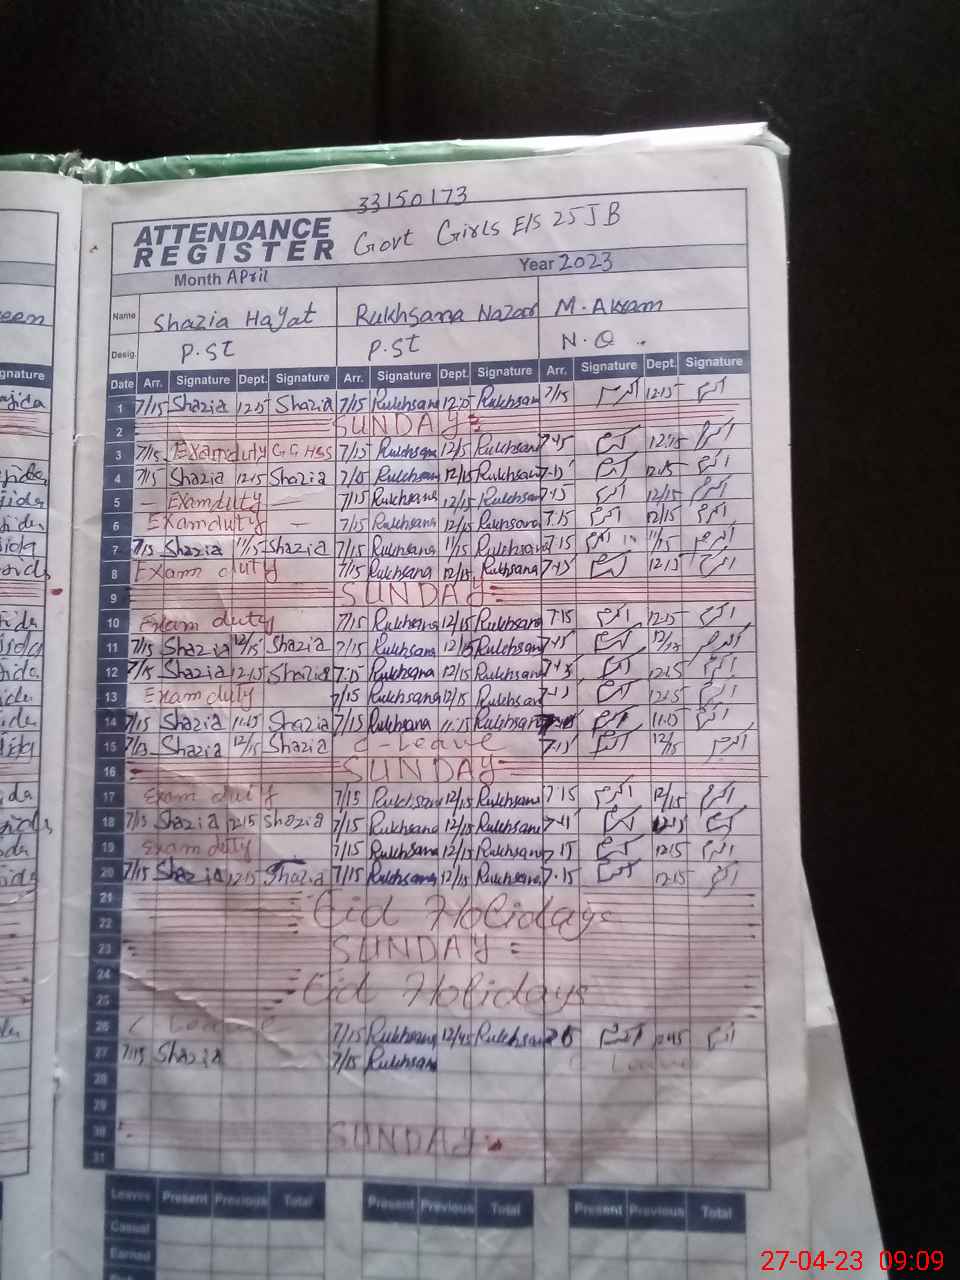 33150173
ATTENDANCE REGISTER Govt Girls E/S 25 JB
Month April Year 2023
Name Shazia Hayat Rukhsana M. Akram
Desig. P.St P.St N.Q
Date Arr. Signature Dept. Signature Arr. Signature Dept. Signature Arr. Signature Dept. Signature
1 7/15 Shazia 12:15 Shazia 7/15 Rukhsana Rukhsana 7/15 اکرم 12:15 اکرم
2 SUNDAY
3 7/15 Exam duty 7/15 Rukhsana 12/15 Rukhsana اکرم 12:15 اکرم
4 7/15 Shazia 12:15 Shazia 7/15 Rukhsana 12/15 Rukhsana 7:15 اکرم 12:15 اکرم
5 — Exam duty — 7/15 Rukhsana 12/15 Rukhsana اکرم 12/15 اکرم
6 Exam duty — 7/15 Rukhsana 12/15 Rukhsana 7:15 اکرم 12/15 اکرم
7 7/15 Shazia 11/15 Shazia 7/15 Rukhsana 11/15 Rukhsana 7:15 اکرم 11/15 اکرم
8 Exam duty 7/15 Rukhsana 12/15 Rukhsana 7:15 اکرم 12:15 اکرم
9 SUNDAY
10 Exam duty 7/15 Rukhsana 12/15 Rukhsana 7:15 اکرم 12:15 اکرم
11 7/15 Shazia 12/15 Shazia 7/15 Rukhsana 12/15 Rukhsana 7:15 اکرم اکرم
12 7/15 Shazia 12:15 Shazia 7:15 Rukhsana 12/15 Rukhsana اکرم 12:15 اکرم
13 Exam duty 7/15 Rukhsana 12/15 Rukhsana اکرم 12:15 اکرم
14 7/15 Shazia 11:15 Shazia 7/15 Rukhsana 11:15 Rukhsana اکرم 11:15 اکرم
15 Shazia 12/15 Shazia C-Leave اکرم 12/15 اکرم
16 SUNDAY
17 Exam duty 7/15 Rukhsana 12/15 Rukhsana 7:15 اکرم 12/15 اکرم
18 7/15 Shazia 12:15 Shazia 7/15 Rukhsana 12/15 Rukhsana اکرم 12:15 اکرم
19 Exam duty 7/15 Rukhsana 12/15 Rukhsana 7:15 اکرم 12:15 اکرم
20 7/15 Shazia 12:15 Shazia 7/15 Rukhsana 12/15 Rukhsana 7:15 اکرم 12:15 اکرم
21
22 Eid Holidays
23 SUNDAY
24
25 Eid Holidays
26 C Leave 7/15 Rukhsana 12/45 Rukhsana اکرم اکرم
27 7/15 Shazia 7/15 Rukhsana C Leave
28
29
30 SUNDAY
31
Leaves Present Previous Total Present Previous Total Present Previous Total
Casual
Earned
27-04-23 09:09